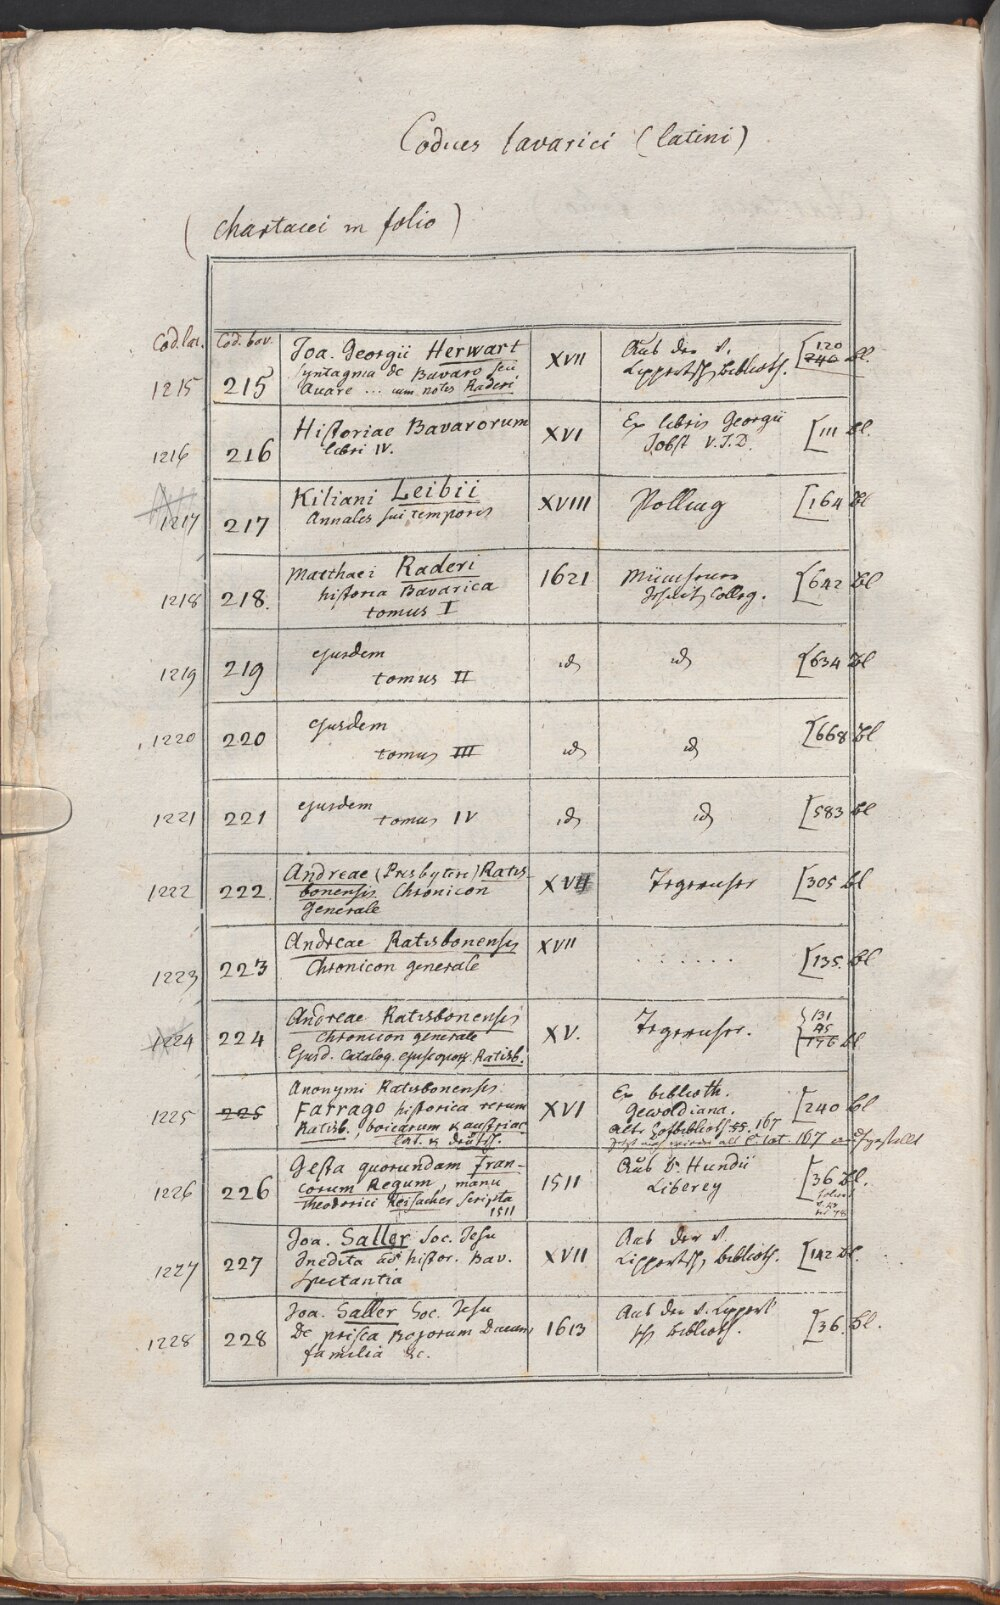 Codices bavarici (latini)
(chartacei in folio)
Cod. lat. Cod. bav.
1215 215 Joa. Georgii Herwart XVII Aus der v. [120 240 Bl.
Syntagma de Bavaro seu Lippertsch Biblioth.
Avare ... cum notis Raderi
1216 216 Historiae Bavarorum XVI Ex libris Georgii [111 Bl.
libri IV. Jobst V.J.D.
1217 217 Kiliani Leibii XVIII Polling [164 Bl
Annales sui temporis
1218 218. Matthaei Raderi 1621 Münchner [642 Bl
historia Bavarica Jesuit Colleg.
tomus I
1219 219 ejusdem id id [634 Bl
tomus II
1220 220 ejusdem id id [668 Bl
tomus III
1221 221 ejusdem id id [583 Bl
tomus IV
1222 222. Andreae (Presbyteri) Ratis- XVII Tegernsee [305 Bl
bonensis Chronicon
generale
1223 223 Andreae Ratisbonensis XVII . . . . . . . [135. Bl
Chronicon generale
1224 224 Andreae Ratisbonensis XV. Tegernsee. [131
Chronicon generale
Ejusd. Catalog. episcopor. Ratisb. 196 Bl
1225 225 Anonymi Ratisbonensis XVI Ex biblioth. [240 Bl
Farrago historica rerum Gewoldiana.
Ratisb., boicarum & austriac alte Hofbiblioth. 167
lat. & deutsch. C. lat. 167 aufgestellt
1226 226 Gesta quorundam Fran- 1511 Aus D. Hundii [36 Bl.
corum Regum, manu Liberey
Theodorici Reisacher scripta
1511
1227 227 Joa. Saller Soc. Jesu XVII Aus der v. [142 Bl.
Inedita ad histor. Bav. Lippertsch, Biblioth.
spectantia
1228 228 Joa. Saller Soc. Jesu 1613 Aus der v. Lippert [36. Bl.
De prisca Bojorum Ducum sch Biblioth.
familia &c.